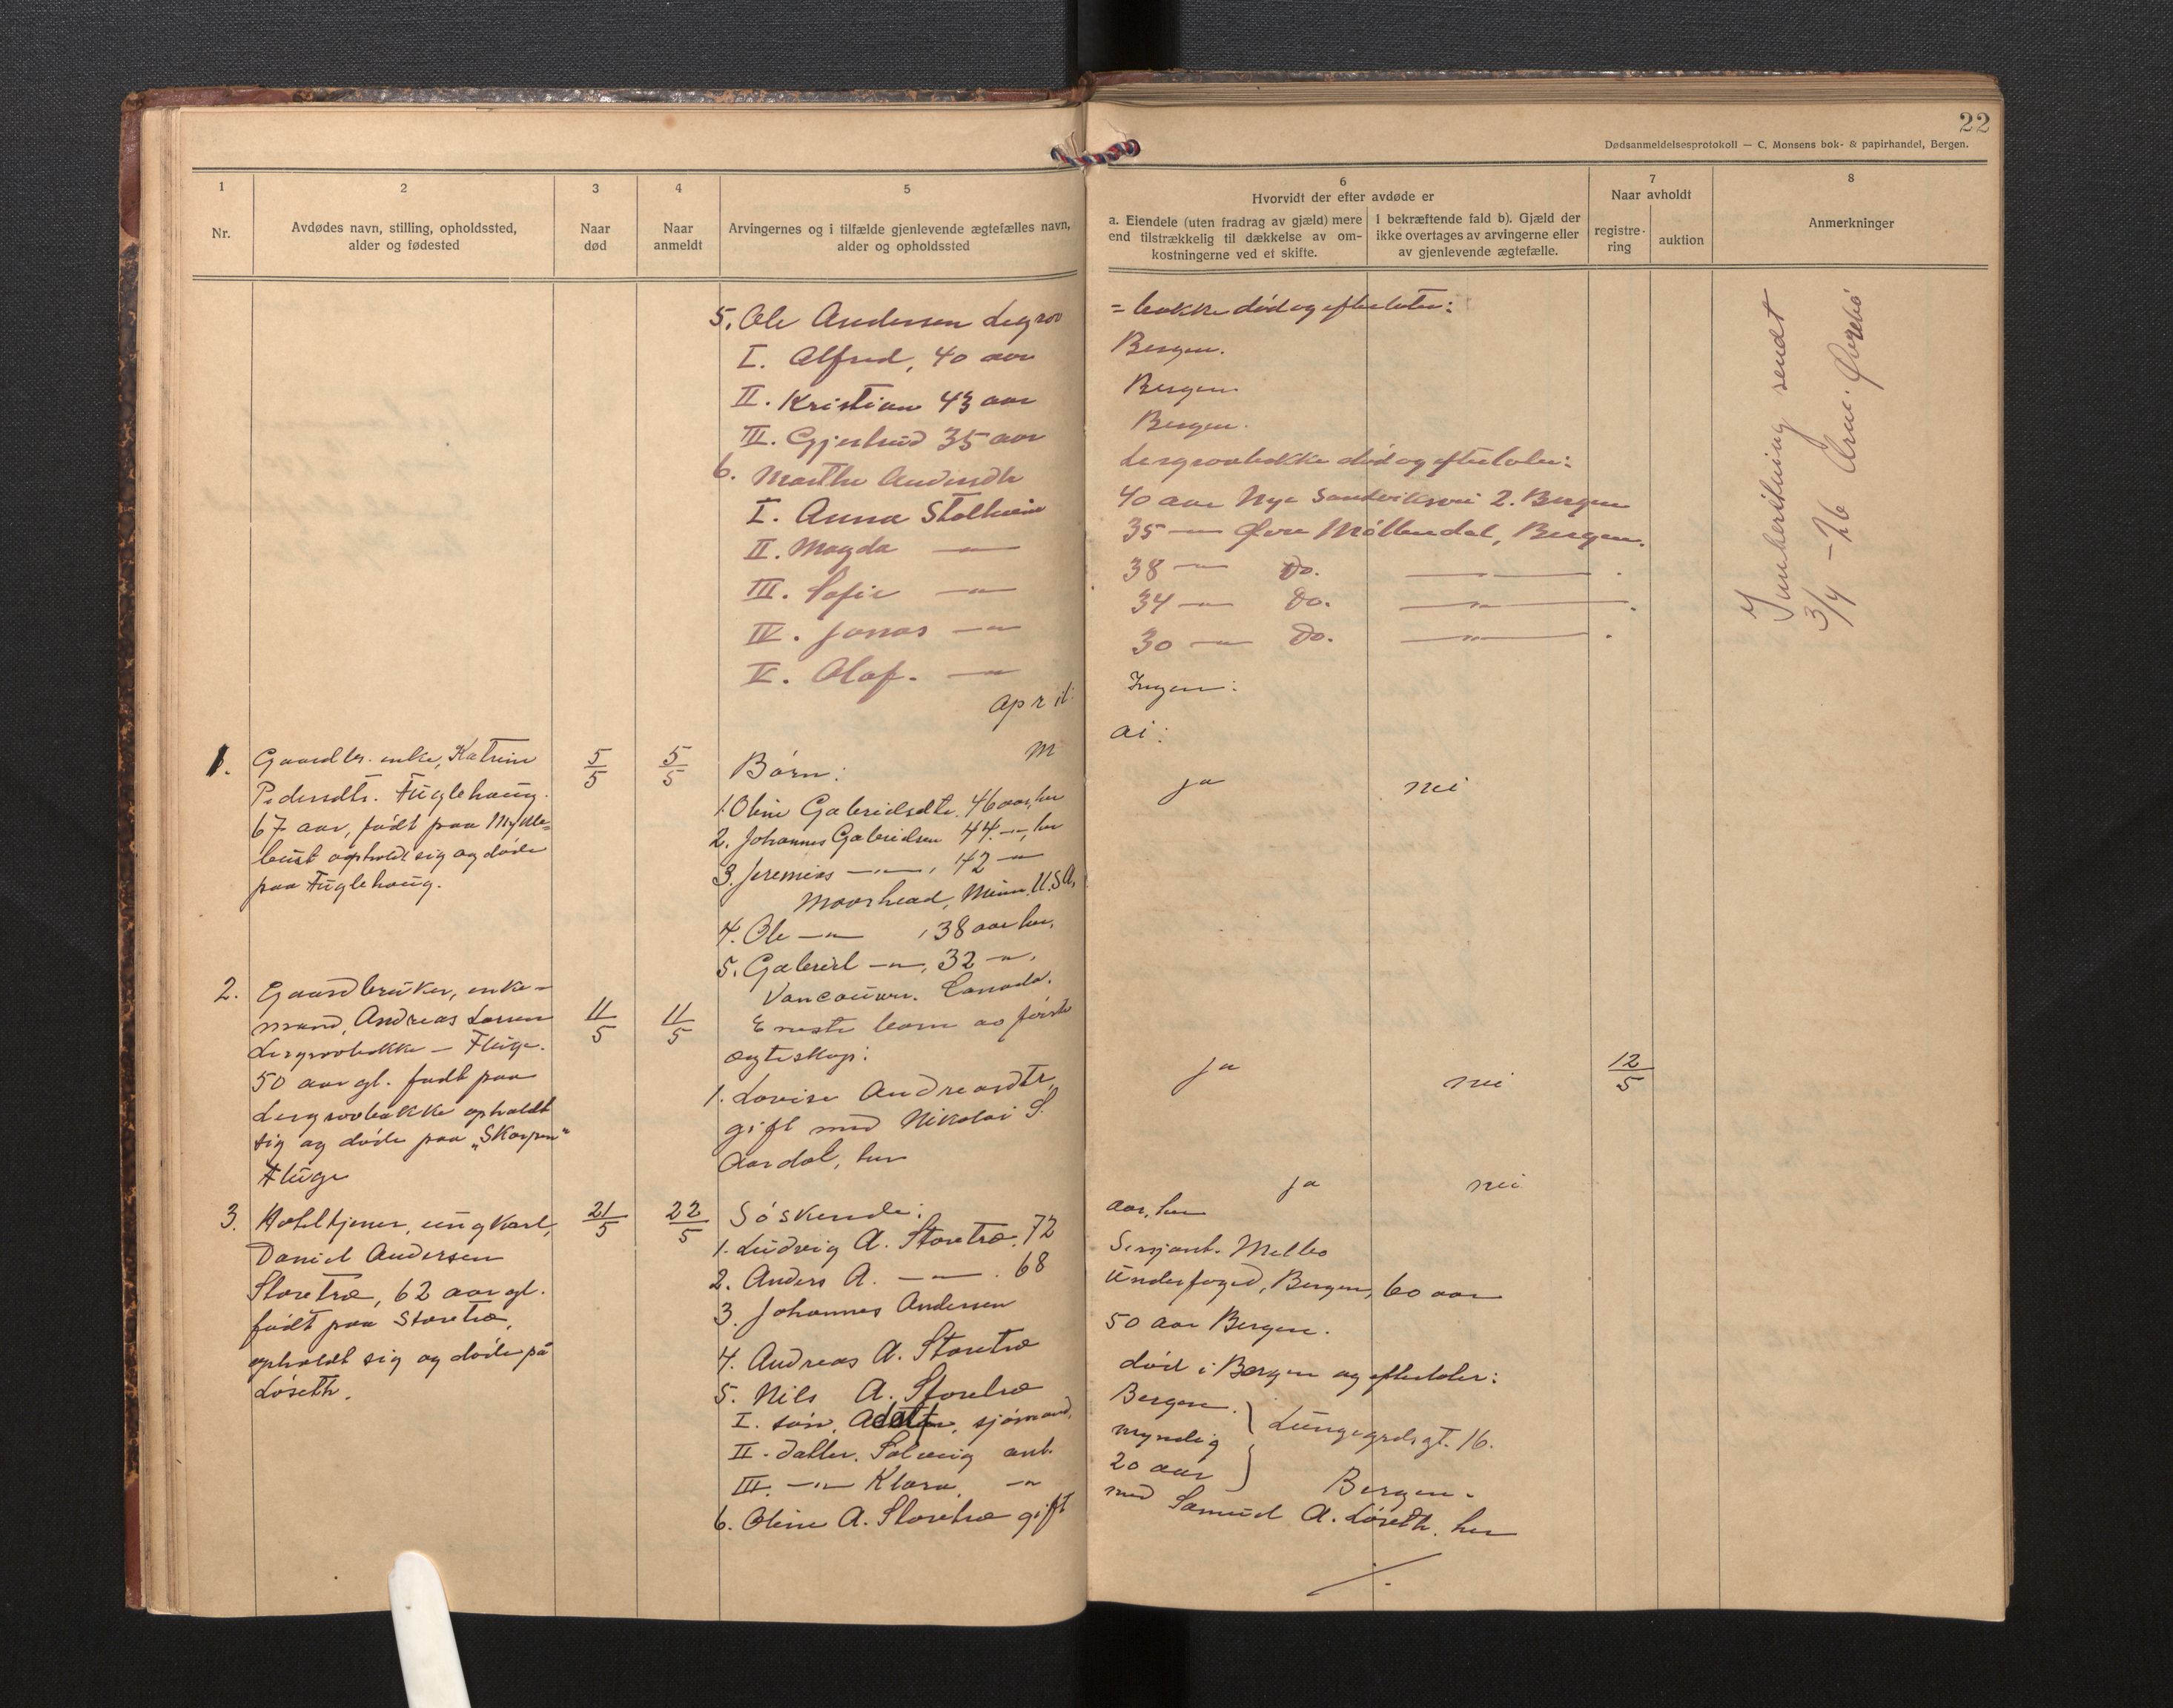 22
Dødsanmeldelsesprotokoll — C. Monsens bok- & papirhandel, Bergen.
1
Nr.
2
Avdødes navn, stilling, opholdssted,
alder og fødested
3
Naar
død
4
Naar
anmeldt
5
Arvingernes og i tilfælde gjenlevende ægtefælles navn,
alder og opholdssted
6
Hvorvidt der efter avdøde er
a. Eiendele (uten fradrag av gjæld) mere
end tilstrækkelig til dækkelse av om-
kostningerne ved et skifte.
i bekræftende fald b). Gjæld der
ikke overtages av arvingerne eller
av gjenlevende ægtefælle.
7
Naar avholdt
registre-
ring
auktion
8
Anmerkninger
5. Ole Andersen Legrov
= bakke død og efterlater:
I. Alfred, 40 aar
Bergen.
II. Kristian 43 aar
Bergen.
III. Gjertrud 35 aar
Bergen.
6. Marthe Andersdtr
død og efterlater:
I. Anna Stalheim
40 aar Nye Sandviksvei 2. Bergen
II. Magda —"—
35 —"— Øvre Møllendal, Bergen.
III. Sofie —"—
38 —"— Do. —"—.
IV. Jonas —"—
34 —"— Do. —"—.
V. Olaf. —"—
30 —"— Do. —"—.
April:
Ingen:
M
ai:
sendt
3/4 - 26
1. Gaardbr. enke, Katrine
Pedersdtr. Fuglehaug.
67 aar, født paa Mykle-
bust opholdt sig og døde
paa Fuglehaug.
5/5
5/5
Børn:
1. Oline Gabrielsdtr. 46 aar, her
2. Johannes Gabrielsen 44 —"—, her
3. Jeremias —"—, 42 —"—
Moorhead, Minn. U.S.A.
4. Ole —"—, 38 aar her.
5. Gabriel —"—, 32 —"—.
Vancouver. Canada.
ja
nei
2. Gaardbruker, enke-
mand, Andreas Larsen
Legrovbakke — Fluge.
50 aar gl. født paa
Legrovbakke opholdt
sig og døde paa „Skarpen"
Fluge
11/5
11/5
Eneste barn av første
ægteskap:
1. Lovise Andreasdtr,
gift med Nikolai S.
Aardal, her
ja
nei
12/5
3. Hoteltjener, ungkarl,
Daniel Andersen
Storetræ, 62 aar gl.
født paa Storetræ,
opholdt sig og døde på
Løseth.
21/5
22/5
ja
nei
Søskende:
1. Ludvig A. Storetræ, 72
aar, her
2. Anders A. —"—. 68
Sersjant. Melbo
3. Johannes Andersen
Underfoged, Bergen, 60 aar
4. Andreas A. Storetræ
50 aar Bergen.
5. Nils A. Storetræ
død i Bergen og efterlater:
I. søn, Adolf, sjømand,
Bergen.
II. datter. Solveig ant.
myndig
III. —"— Klara, —"—
20 aar
Lungegrdsgt. 16.
Bergen.
6. Oline A. Storetræ gift
med Samuel A. Løseth. her